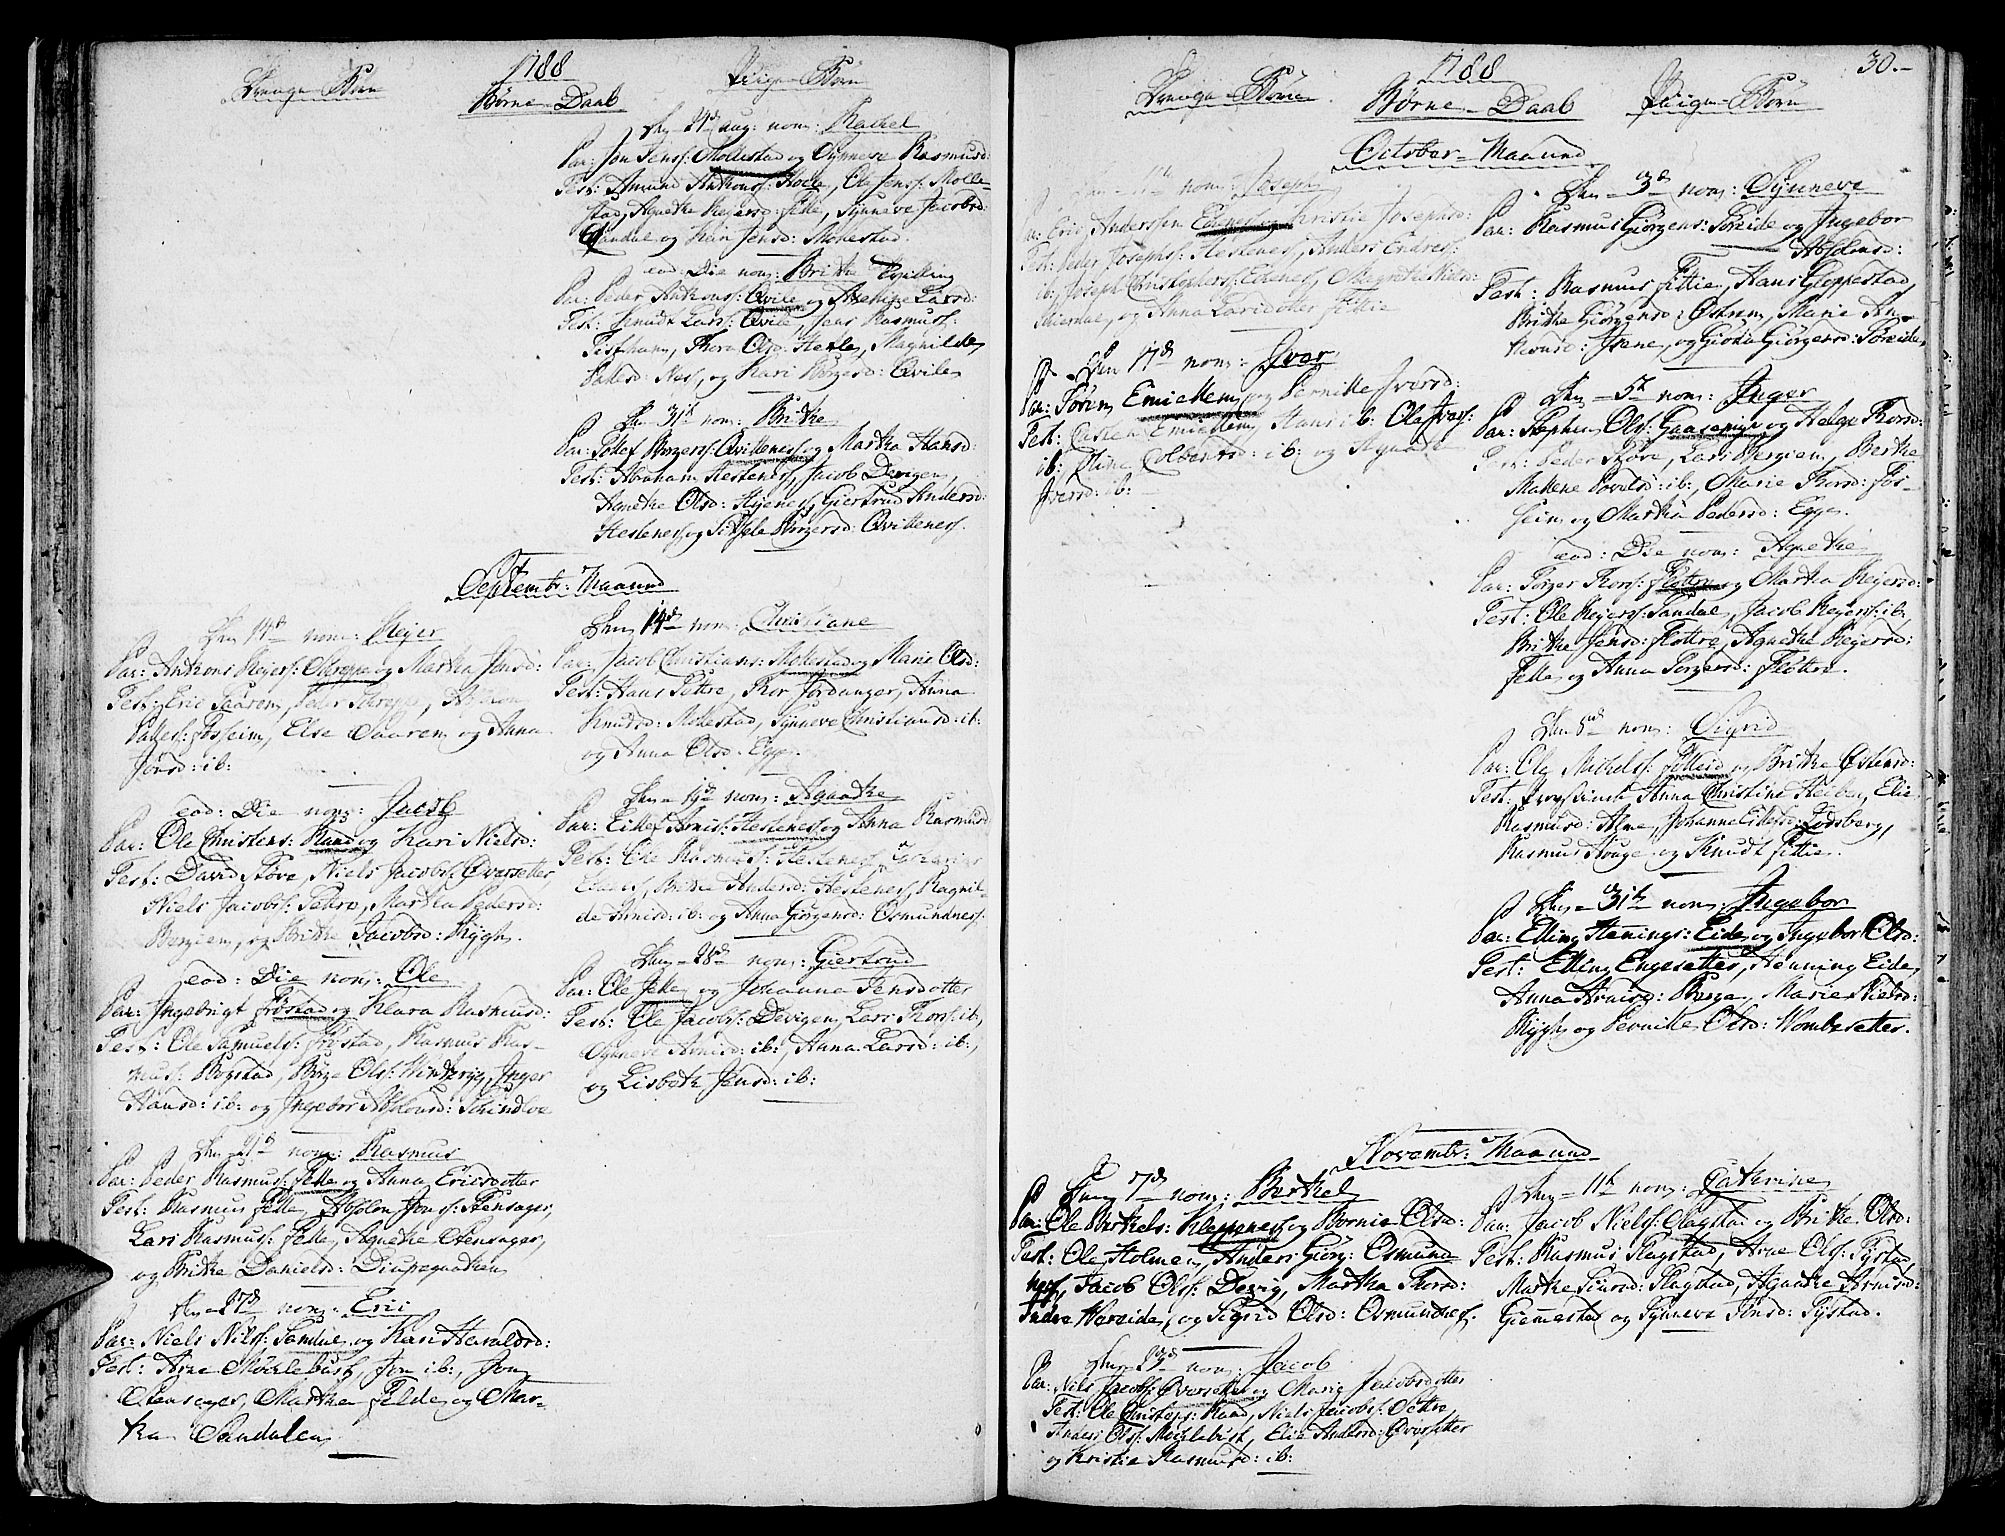 1788
Drenge-Børn
Børne-Daab
Piige-Børn
Den 24d aug: nom: Rachel
Par: Jon Jens: Mollestad og Synneve Rasmusd:
Test: Amund Antons: Hole, Ole Jens: Molle-
stad, Agnethe Rejersd: Felle, Synneve Jacobsd:
Sandal og Kari Jensd: Molestad.
eod: Die nom: Brithe
Par: Peder Antons: Qvile og Larsd:
Test: Knudt Lars: Qvile, Jens Rasmus:
Thora Olsd: Hesle, Magnilde
Pallesd: Nes, og Kari Børgesd: Qvile
Den 31te nom: Brithe
Par: Tollef Børgers: Qvittenes og Martha Hansd:
Test: Abraham Hestenes, Jacob Devigen,
Agnethe Olsd: Hyenes, Giertrud Andersd:
Hestenes og Børgersd: Qvittenes.
Septembr: Maaned
Den 14d nom: Rejer
Par: Anthons Rejers: Skreppe og Martha Jonsd:
Test: Eric Saaren, Peder Skreppe,
Palles: Fosseim, Else Saaren og Anna
Jonsd: ib:
eod: Die nom: Jacob
Par: Ole Christens: Rand og Kari Nielsd:
Test: David Støve, Niels Jacobs: Øvrsetter,
Niels Jacobs: Tettre, Martha Pedersd:
Bergiem, og Brithe Jacobsd: Rygh.
eod: Die nom: Ole
Par: Ingebrigt Frøstad og Klara Rasmusd:
Test: Ole Samuels: Frøstad, Rasmus Ras-
mus: Rogstad, Børge Ols: Hindvig, Inger
Hansd: ib: og Ingebor Absolonsd:
Den 21d nom: Rasmus
Par: Peder Rasmus: Felle og Anna Ericsdotter
Test: Rasmus Felle, Absolon Jons: Stensager,
Lars Rasmus: Felle, Agnethe Stensager,
og Brithe Danielsd:
Den 27d nom: Eric
Par: Niels Nils: Sandal og Kari Haraldsd:
Test: Arne Møcklebust, Jon ib:, Jon
Stensager, Marthe Felde og Mar-
tha Sandalen
Den 14d nom: Christiane
Par: Jacob Christians: Molestad og Marie Olsd:
Test: Hans Tettre, Thor Jordanger, Anna
Knudsd: Molestad, Synneve Christiansd: ib:
og Anna Olsd: Egge.
Den 19d nom: Agaathe
Par: Ellef Arnis: Hestenes og Anna Rasmusd
Test: Ole Rasmus: Hestenes, Zacarias
Ebenes, Brithe Andersd: Hestenes, Ragnil-
de Arnisd: ib: og Anna Giørgensd: Osmundnes:
Den 28d nom: Giertrud
Par: Ole Felle og Johanna Jensdotter
Test: Ole Jacobs: Devigen, Lars Thors: ib:,
Synneve Arnisd: ib:, Anna Larsd: ib:,
og Lisbeth Jensd: ib:
30.-
1788
Drenge-Børn
Børne-Daab
Piige-Børn
October-Maaned
Den 11te nom: Joseph
Par: Eric Andersen Ebenes og Christie Josephsd:
Test: Peder Josephs: Hestenes, Anders Endres:
ib:, Joseph Christophers: Ebenes, Magrethe Nielsd:
og Anna Larsdotter Fittie
Den 17d nom: Iver
Par: Søren Emichem og Pernille Iversd:
Test: Casten Emichem, Hans ib: Ole Ivers:
ib: Olina Colbensd: ib: og Agaade
Iversd: ib:
Den 3d nom: Synneve
Par: Rasmus Giørgens: Søreide og Ingebor
Absolonsd:
Test: Rasmus Fittie, Hans Gloppestad,
Brithe Giørgensd: Østrem, Marie An-
dersd: Isene, og Giørgensd: Søreide
Den 5te nom: Inger
Par: Stephen Ols: Gaasemyr og Helge Thorsd:
Test: Peder Støve, Lars Bergiem, Berthe
Mallene Povelsd: ib:, Marie Thorsd: Fos-
seim og Martha Pedersd: Egge.
eod: Die nom: Agnethe
Par: Torger Thors: Flottre og Martha Rejersd:
Test: Ole Rejers: Sandal, Jacob Rejers: ib:
Brithe Jensd: Flottre, Agnethe Rejersd:
Felle og Anna Torgersd: Flottre.
Den 8de nom: Sigrid
Par: Ole Mikels: Felleid og Brithe Østensd:
Test: Anna Christine Heiberg, Elie
Rasmusd: Alme, Johanne Ellefsd: Lodsberg,
Rasmus Houge og Knudt Fittie.
Den 31te nom: Ingebor
Par: Elling Hennings: Eide og Ingebor Olsd:
Test: Elling Engesetter, Henning Eide,
Anna Arnisd: Berge, Marie Nielsd:
Rygh og Pernille Olsd: Wombesetter.
Novembr: Maaned
Den 7d nom: Berthel
Par: Ole Berthels: Kleppenes og Bernie Olsd:
Test: Ole Holmen, Anders Giørg: Osmund
nes, Jacob Ols: Devig, Martha Thorsd:
Indre Horeide, og Sigrid Olsd: Osmundnes.
Den 23d nom: Jacob
Par: Nils Jacobs: Øversetter og Marie Jacobsdotter
Test: Ole Christens: Rand, Niels Jacobs: Tettre,
Anders Ols: Mochlebust, Elie Andersd: Øversetter
og Kristie Rasmusd: ib:
Den 11te nom: Cathrine
Par: Jacob Niels: Flagstad og Brithe Olsd:
Test: Rasmus Flagstad, Arne Ols: Tystad,
Marthe Siursd: Flagstad, Agaathe Arnisd:
Giemestad og Synneve Jonsd: Tystad.